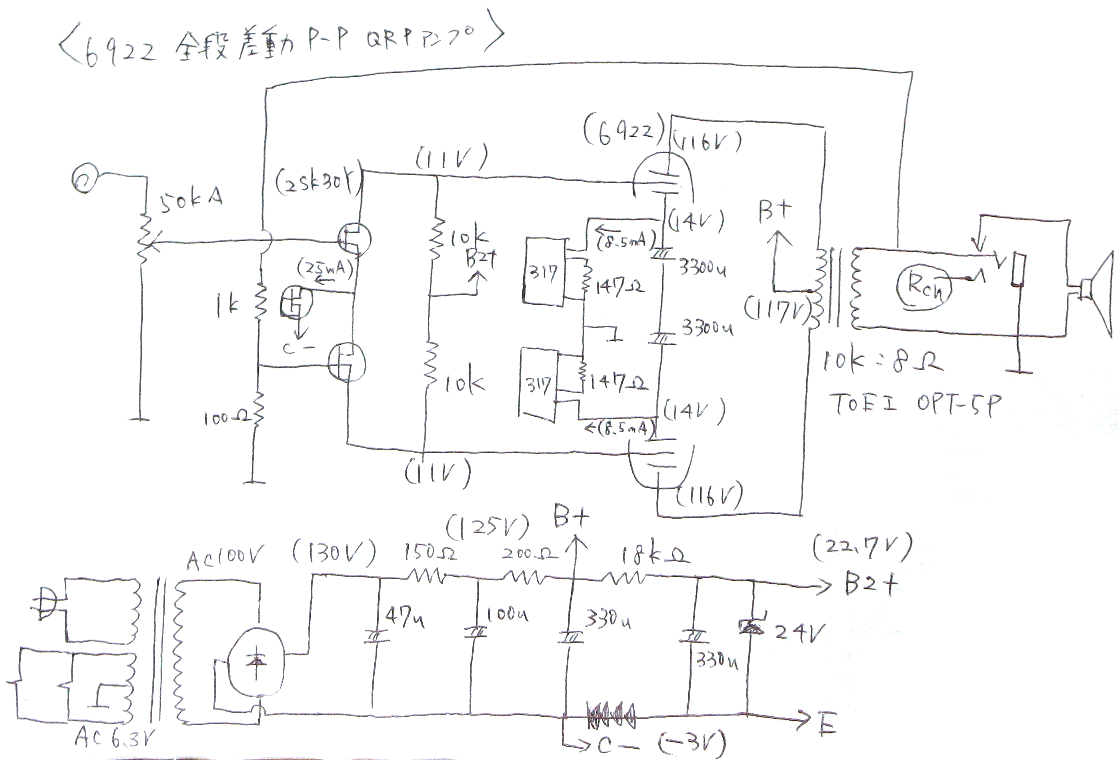 〈6922 全段差動 P-P QRPアンプ〉
(6922)
(116V)
(11V)
(2SK30Y)
50kA
10k
B2+
(25mA)
1k
C-
100Ω
10k
(11V)
(14V)
(8.5mA)
317
147Ω
3300u
3300u
317
147Ω
(14V)
(8.5mA)
(116V)
B+
(117V)
Rch
10k:8Ω
TOEI OPT-5P
AC100V
(130V)
150Ω
(125V)
200Ω
B+
18kΩ
(22.7V)
B2+
47u
100u
330u
330u
24V
E
C- (-3V)
AC6.3V